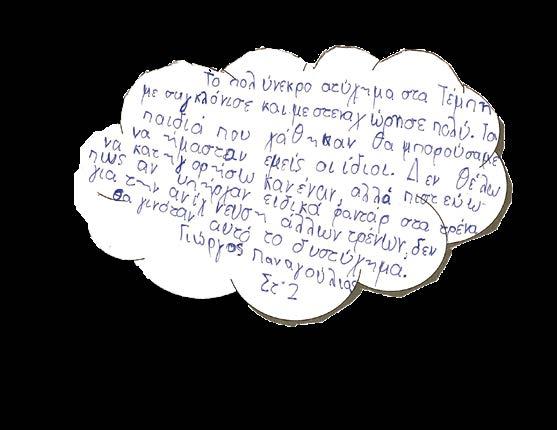 Το πολύνεκρο ατύχημα στα Τέμπη
με συγκλόνισε και με στεναχώρησε πολύ. Τα
παιδιά που χάθηκαν θα μπορούσαμε
να ήμασταν εμείς οι ίδιοι. Δεν θέλω
να κατηγορήσω κανέναν, αλλά πιστεύω
πως αν υπήρχαν ειδικά ραντάρ στα τρένα
για την ανίχνευση άλλων τρένων, δεν
θα γινόταν αυτό το δυστύχημα.
Γιώργος Παναγούλιας
Στ'2